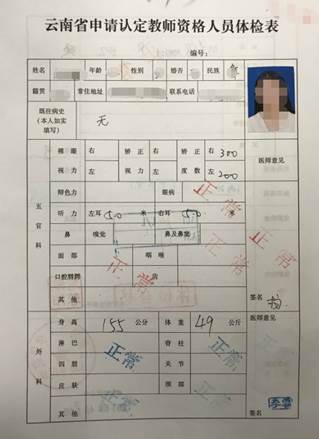 云南省申请认定教师资格人员体检表
编号：
姓名 年龄 性别 婚否 民族
籍贯 常住地址 联系电话
既往病史
（本人如实
填写）
无
五官科
裸眼 右 矫正 右 300
视力 左 度数 左 200
医师意见
辩色力 眼病
听力 左耳 5.0 米 右耳 5.0 米
鼻 嗅觉 鼻及鼻窦
面部 咽喉
口腔唇腭 齿
其他
正常
正常
正常
正常
签名
外科
身高 155 公分 体重 49 公斤
医师意见
淋巴 脊柱
四肢 关节
皮肤 颈部
其他
正常
正常
签名